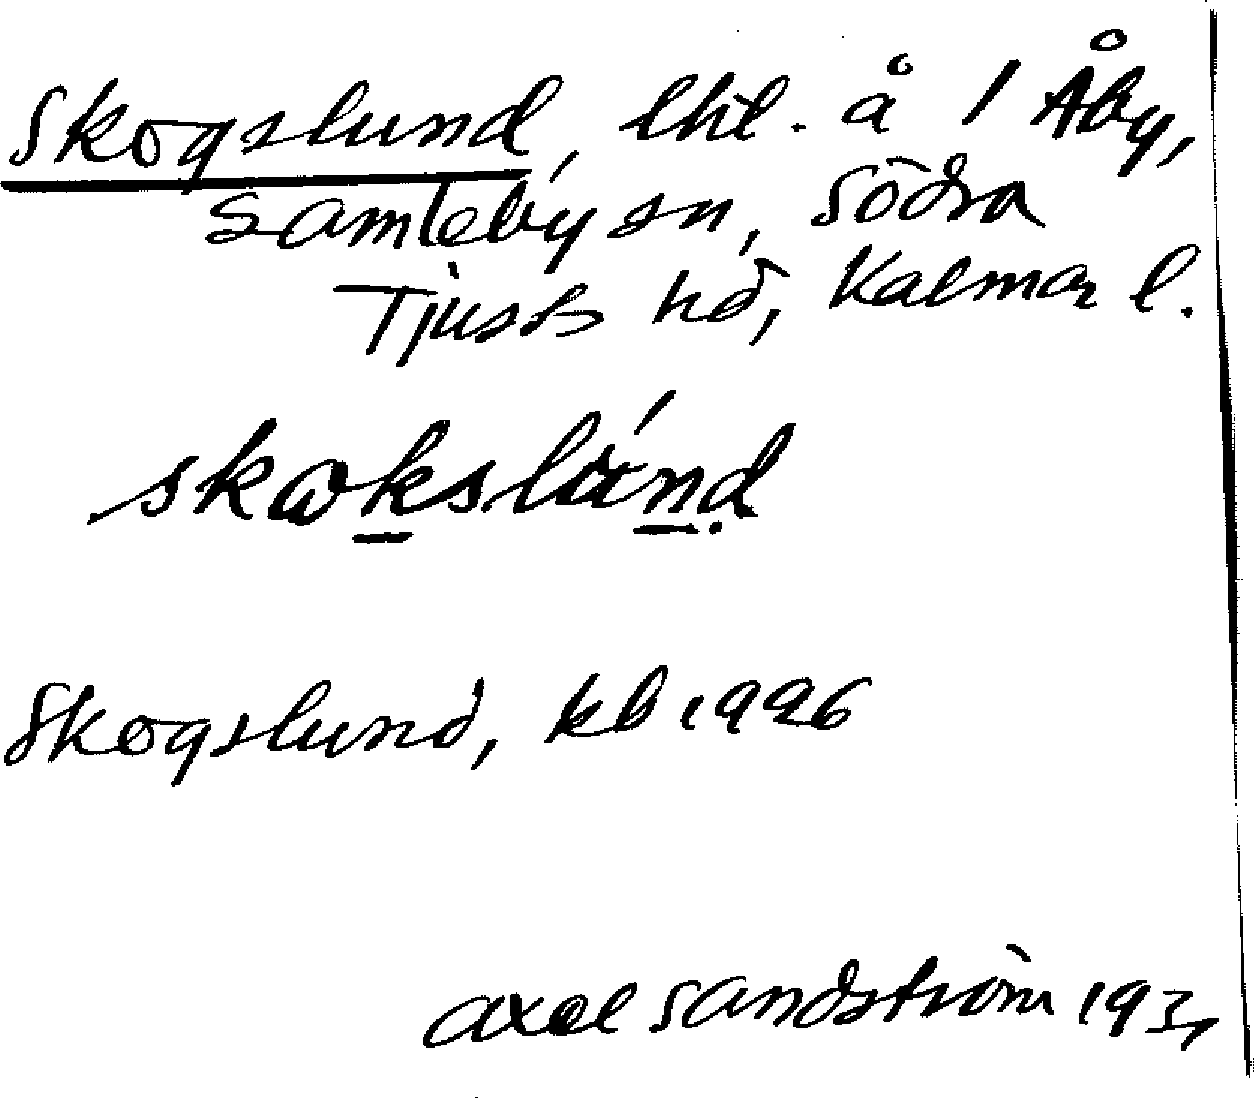 Skogslund, lht. å 1 Åby,
Gamleby sn, Södra
Tjusts hd, Kalmar l.
skokslünd
Skogslund, kb 1926
Axel Sandström 193